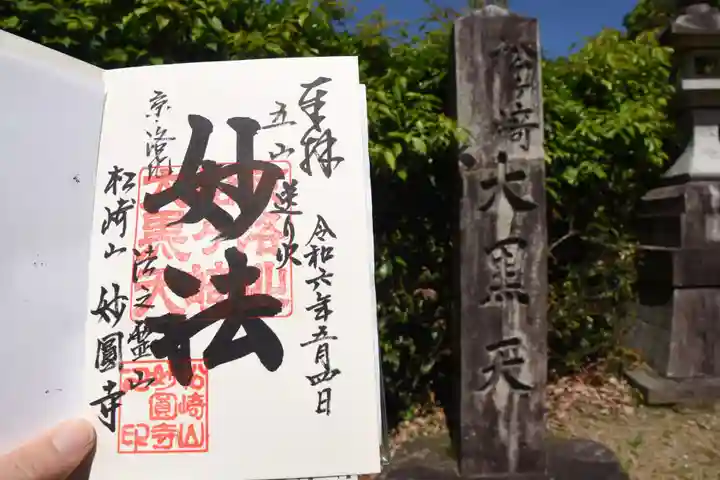 奉拝
五山送り火
令和六年五月四日
妙法
京・洛北
法之霊山
松崎山 妙圓寺
松崎山
妙圓寺
之印
松ヶ崎
大黒天